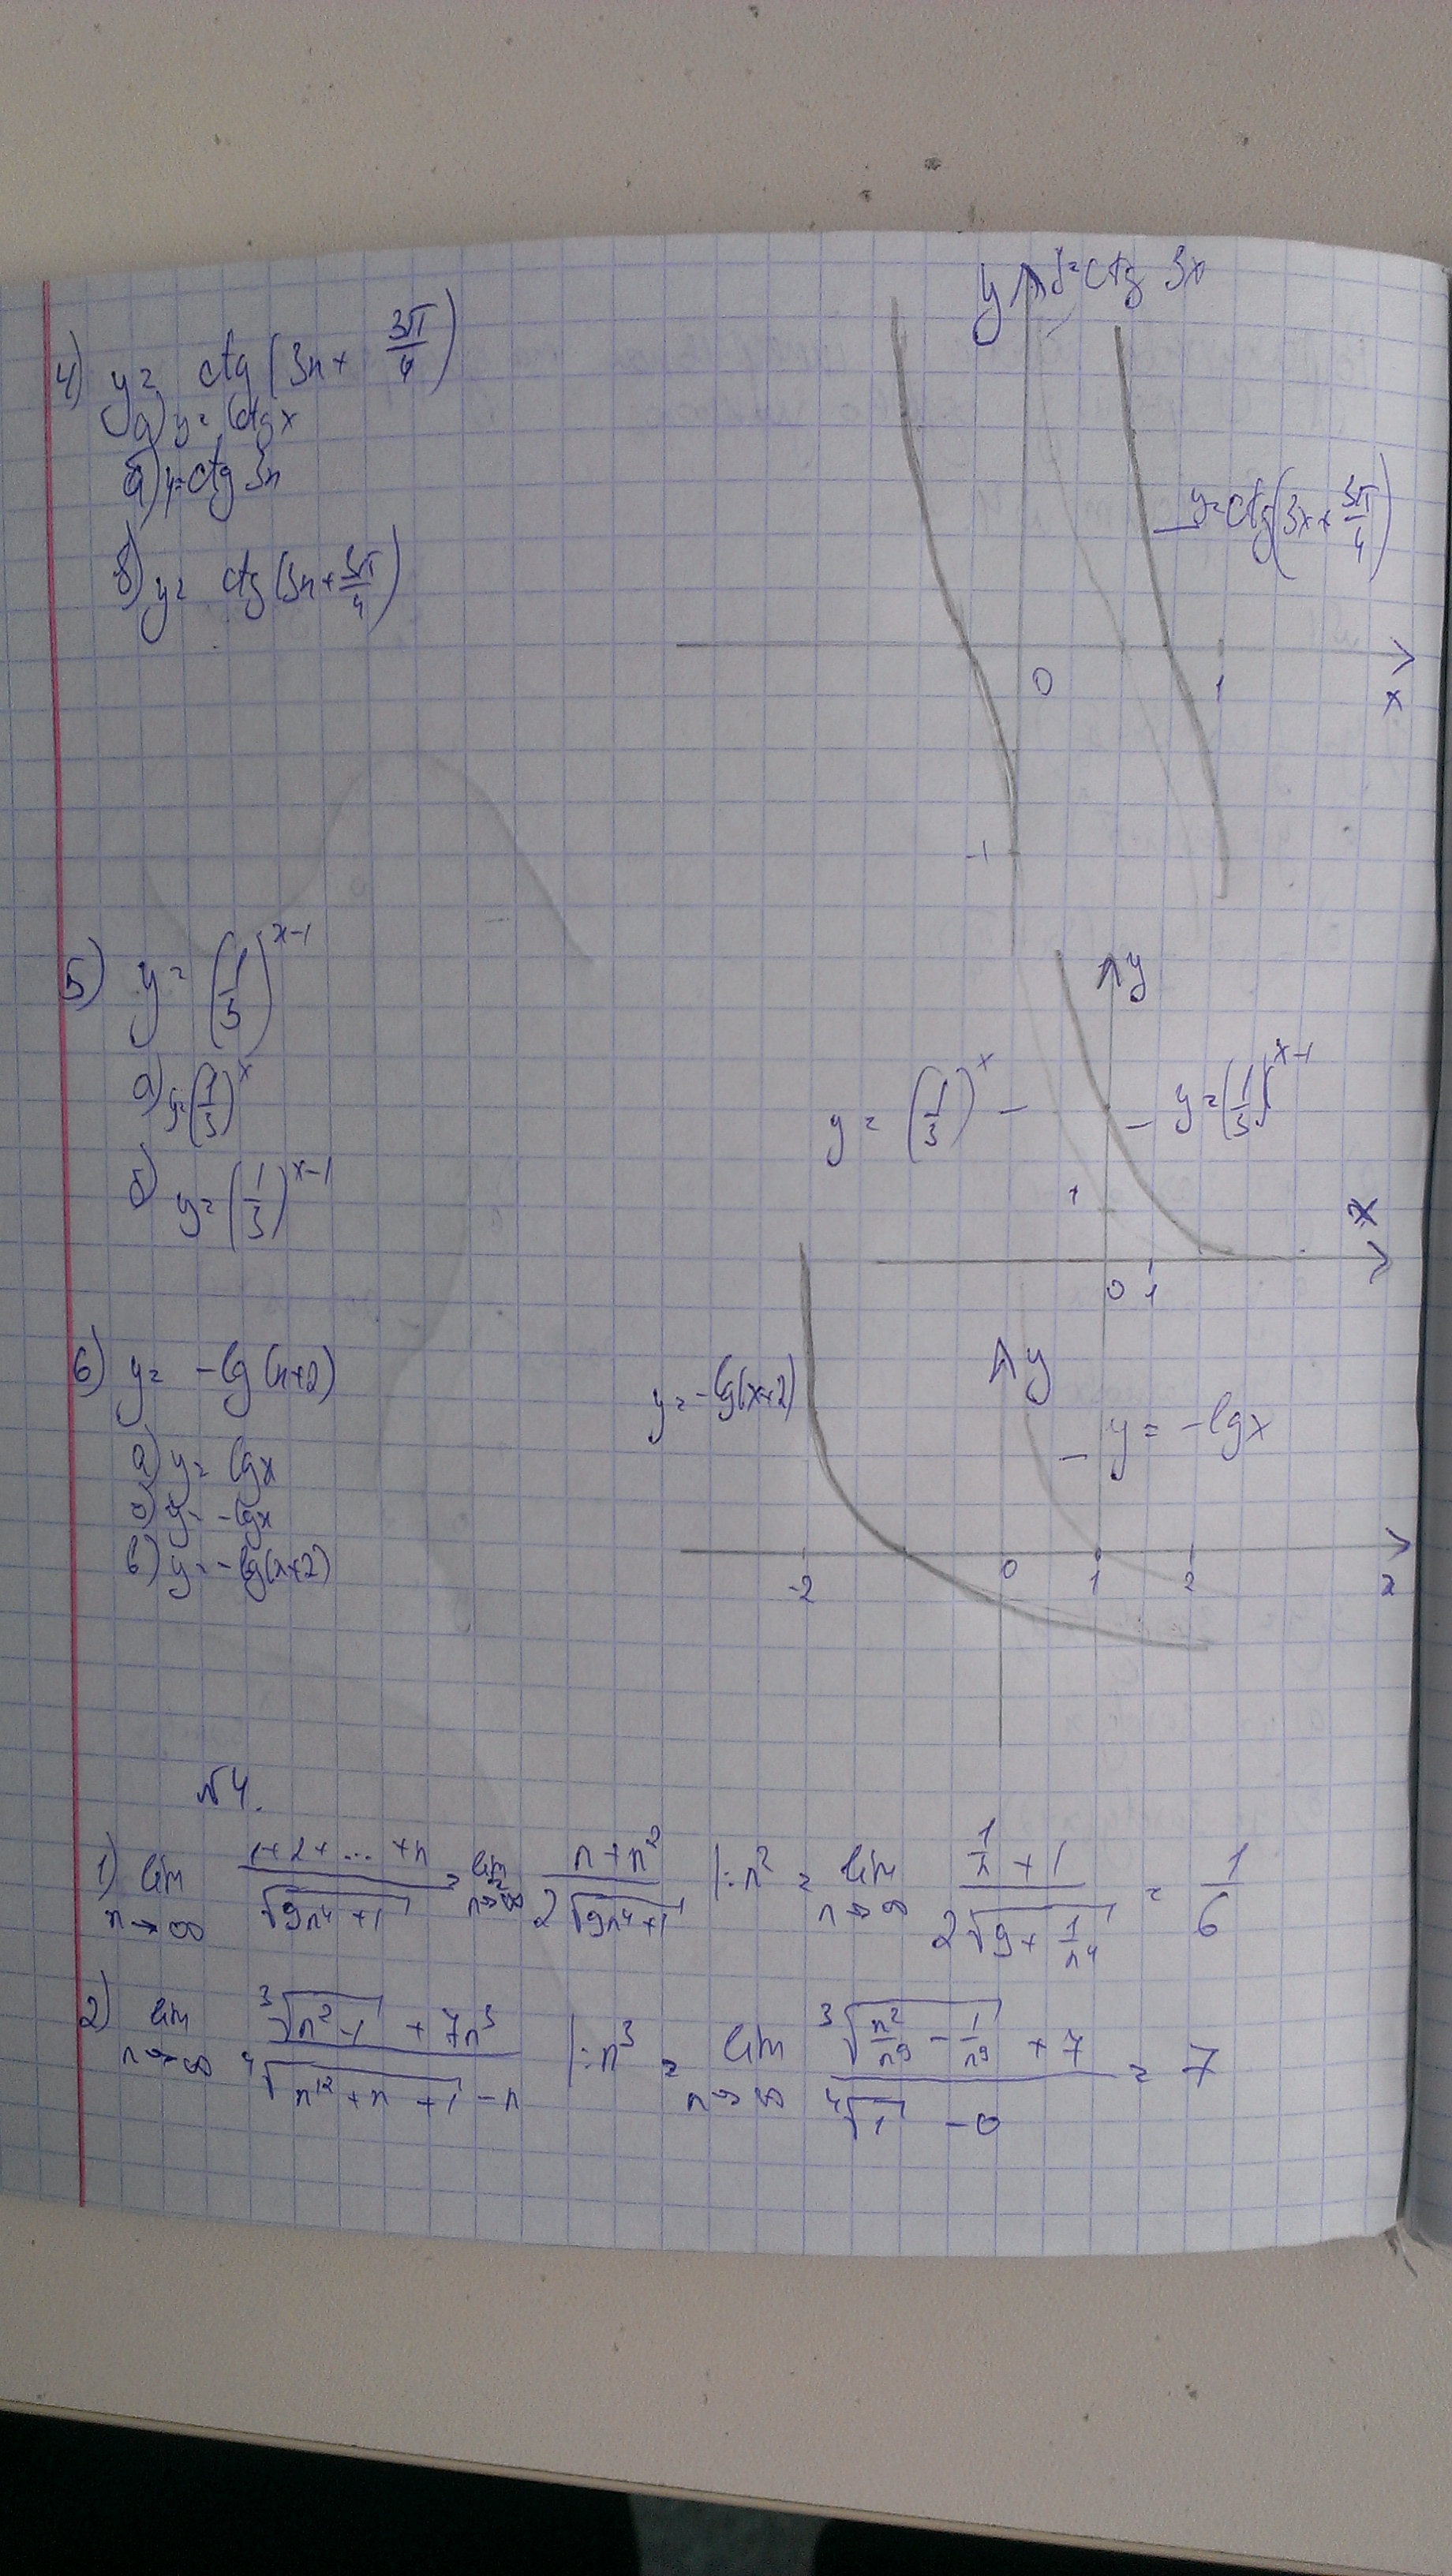 y y = ctg 3x
4) y = ctg (3x + 3π/4)
а) y = ctg x
б) y = ctg 3x
y = ctg (3x + 3π/4)
в) y = ctg (3x + 3π/4)
0 1 x
-1
5) y = (1/3)^(x-1)
y
а) y = (1/3)^x
y = (1/3)^x
y = (1/3)^(x-1)
б) y = (1/3)^(x-1)
1
x
0 1
6) y = -lg (x+2)
y = -lg(x+2)
y
y = -lg x
а) y = lg x
б) y = -lg x
в) y = -lg(x+2)
-2 0 1 2 x
№4.
1) lim n→∞ (1+2+...+n)/√(9n⁴+1) = lim n→∞ (n+n²)/(2√(9n⁴+1)) |:n² = lim n→∞ (1/n + 1)/(2√(9 + 1/n⁴)) = 1/6
2) lim n→∞ (³√(n²-1) + 7n³)/(⁴√(n¹²+n+1) - n) |:n³ = lim n→∞ (³√(n²/n⁹ - 1/n⁹) + 7)/(⁴√1 - 0) = 7